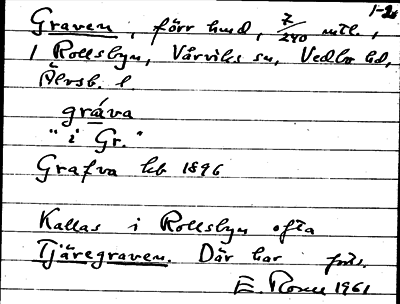 1-20
Graven, förr hmd, 7/240 mtl.,
/ Rollsbyn, Vårviks sn, Vedbo hd,
Älvsb. l.
gráva
"i Gr."
Grafva kb 1896
Kallas i Rollsbyn ofta
Tjäregraven. Där har
E. 1961